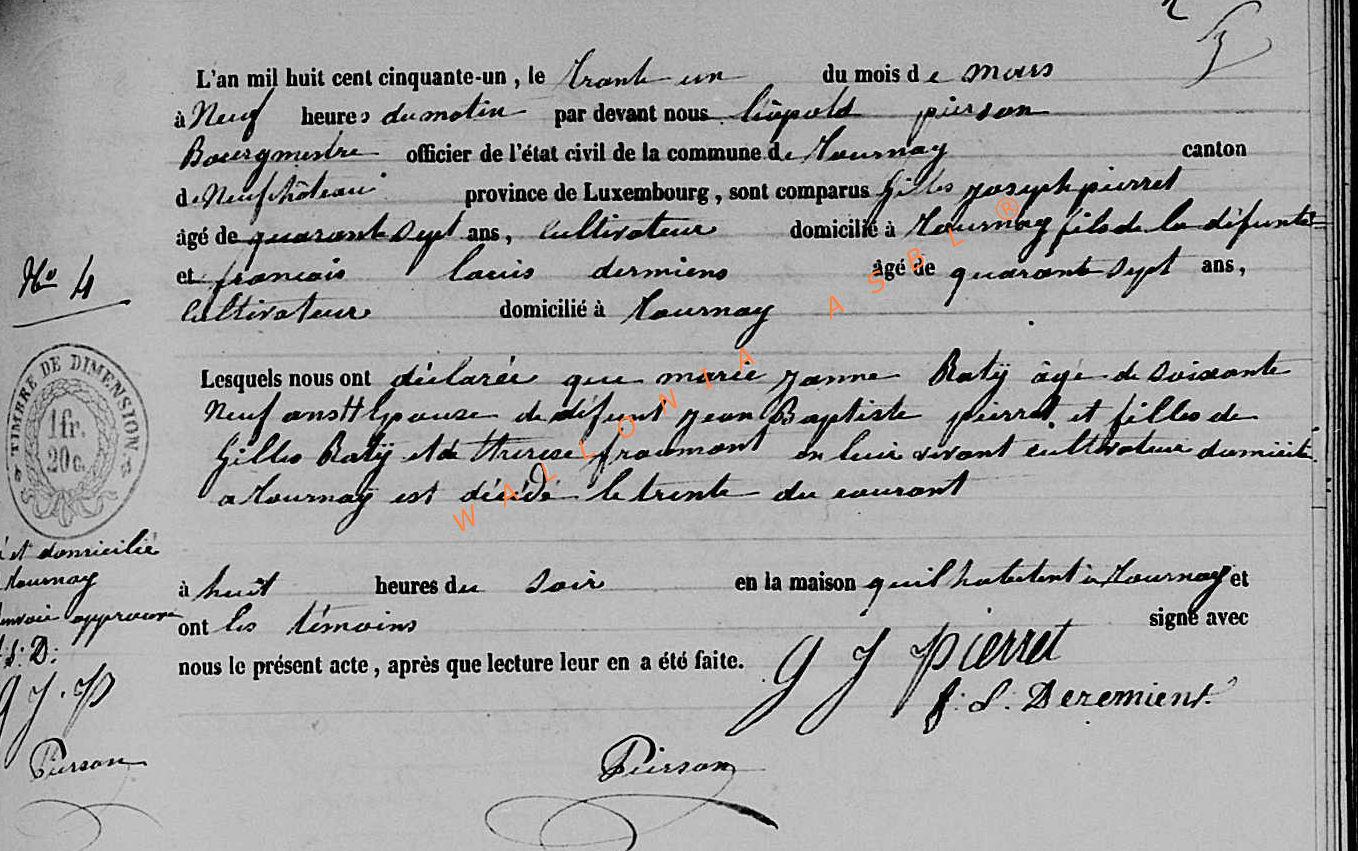 L'an mil huit cent cinquante-un, le trante un du mois de mars
à Neuf heures du matin par devant nous léopold pierson
Bourgmestre officier de l'état civil de la commune de Tournay canton
de Neufchâteau province de Luxembourg, sont comparus Gilles Joseph pierret
âgé de quarante sept ans, cultivateur domicilié à Tournay fils de la défunte
et francais louis dermiens âgé de quarante sept ans,
cultivateur domicilié à Tournay
No 4
TIMBRE DE DIMENSION
1 fr.
20 c.
Lesquels nous ont déclarée que marie Janne Raty âgé de soixante
Neuf ans épouse de défunt Jean Baptiste pierret et filles de
Gilles Raty et de therese fraumont en leur vivant cultivateur domicilié
a Tournay est décédé le trente du courant
et domicilié
Tournay
renvoi approuvé
f. S. D.
G J. P
Pierson
à huit heures du soir en la maison quil habitent à Tournay et
ont les témoins signé avec
nous le présent acte, après que lecture leur en a été faite.
G J Pierret
f. L. Deremiens
Pierson
WALLONIA ASBL ®